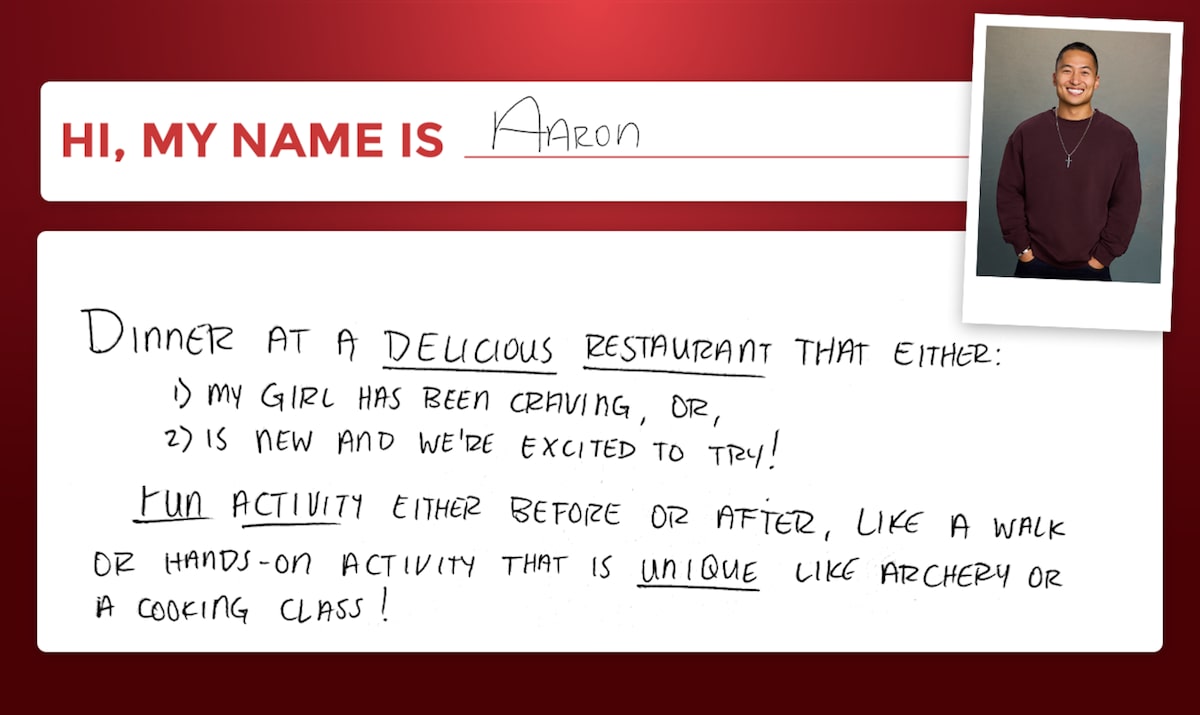 HI, MY NAME IS AARON
DINNER AT A DELICIOUS RESTAURANT THAT EITHER:
1) MY GIRL HAS BEEN CRAVING, OR,
2) IS NEW AND WE'RE EXCITED TO TRY!
FUN ACTIVITY EITHER BEFORE OR AFTER, LIKE A WALK
OR HANDS-ON ACTIVITY THAT IS UNIQUE LIKE ARCHERY OR
A COOKING CLASS!